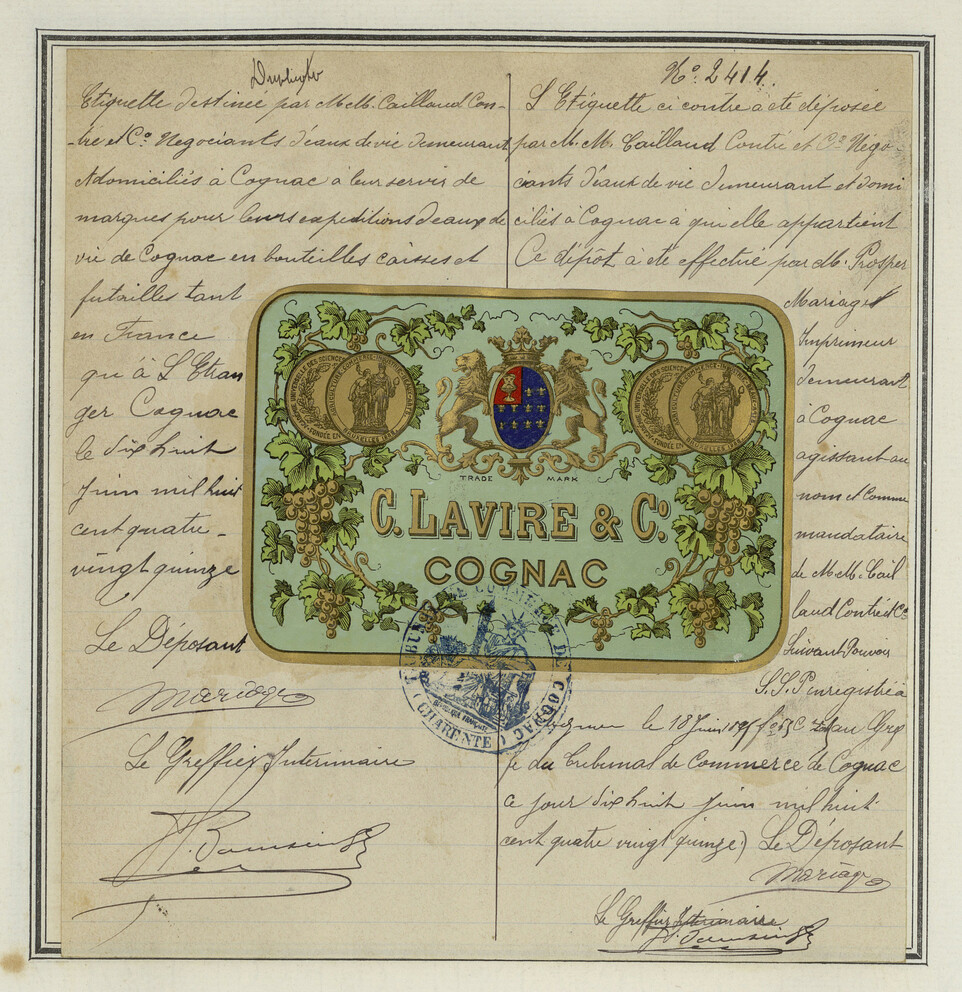 Duplicata
Etiquette destinée par M.M. Caillaud Con-
-tre et Cº. Negociants d'eaux de vie demeurant
et domiciliés à Cognac à leur servir de
marques pour leurs expeditions d'eaux de
vie de Cognac en bouteilles caisses et
futailles tant
en France
qu'à L'Etran
ger Cognac
le dix huit
Juin mil huit
cent quatre-
vingt quinze
Le Déposant
Mariage
Le Greffier Interimaire
Nº. 2414.
L'Etiquette ci contre a été déposée
par M.M. Caillaud Contré et Cº. Négo-
ciants d'eaux de vie demeurant et domi
ciliés à Cognac à qui elle appartient
Ce dépôt a été effectué par M. Prosper
Mariage
Imprimeur
demeurant
à Cognac
agissant au
nom et comme
mandataire
de M.M. Cail
laud Contré et Cº
Suivant Pouvoir
S.S.P enregistré à
le 18 Juin au Gref
fe du Tribunal de Commerce de Cognac
ce jour dix huit Juin mil huit
cent quatre vingt quinze) Le Déposant
Mariage
Le Greffier Interimaire
TRADE MARK
C. LAVIRE & Cº.
COGNAC
TRIBUNAL DE COMMERCE DE COGNAC
(CHARENTE)